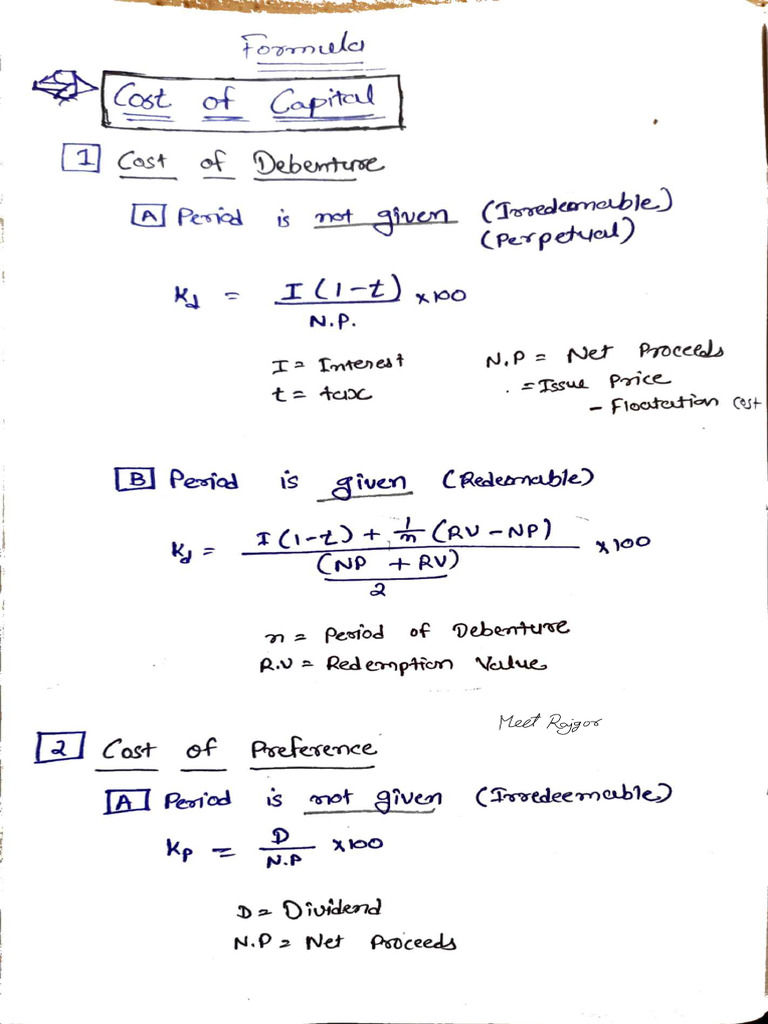 Formula
Cost of Capital
1 Cost of Debenture
A Period is not given (Irredeemable)
(Perpetual)
Kd = I (1-t) / N.P. × 100
I = Interest
t = tax
N.P = Net Proceeds
= Issue Price
- Floatation cost
B Period is given (Redeemable)
Kd = I (1-t) + 1/n (RV - NP) / (NP + RV) / 2 × 100
n = Period of Debenture
R.V = Redemption Value
Meet Rajgor
2 Cost of Preference
A Period is not given (Irredeemable)
Kp = D / N.P × 100
D = Dividend
N.P = Net Proceeds